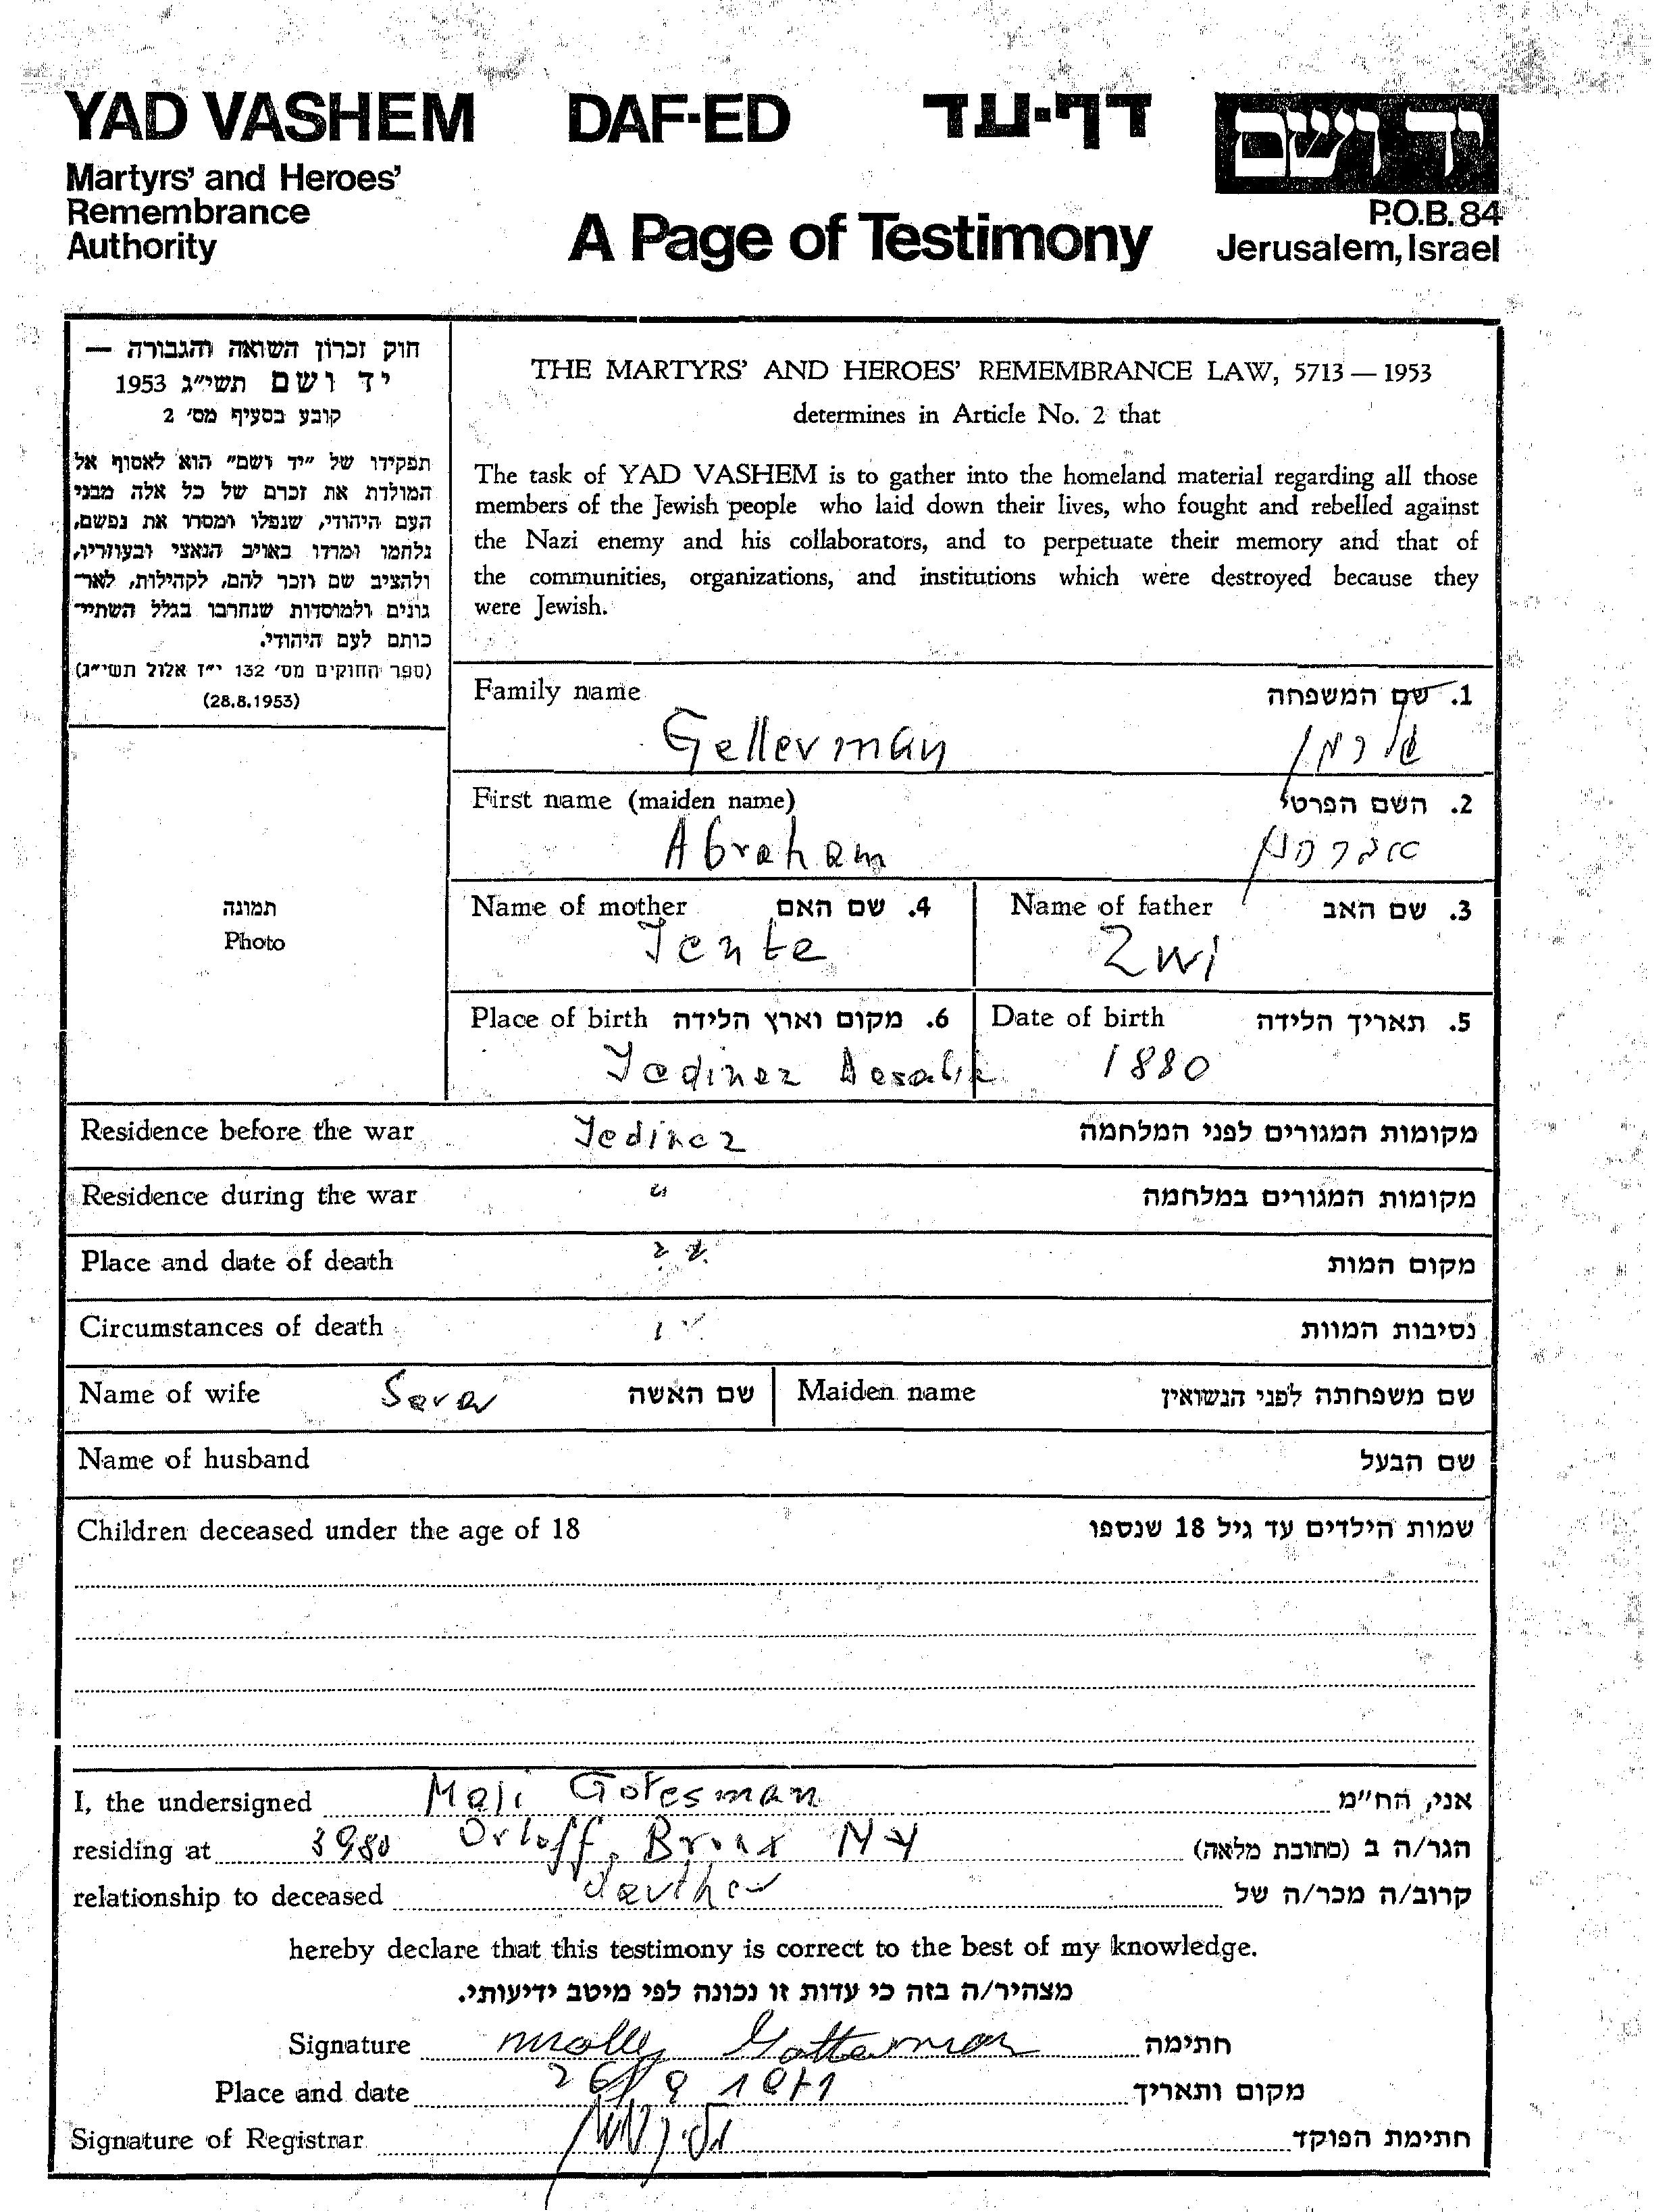 YAD VASHEM DAF-ED דף-עד יד ושם
Martyrs' and Heroes'
Remembrance
Authority
A Page of Testimony
P.O.B. 84
Jerusalem, Israel
חוק זכרון השואה והגבורה —
יד ושם תשי״ג 1953
קובע בסעיף מס׳ 2
תפקידו של ״יד ושם״ הוא לאסוף אל
המולדת את זכרם של כל אלה מבני
העם היהודי, שנפלו ומסרו את נפשם,
נלחמו ומרדו באויב הנאצי ובעוזריו,
ולהציב שם וזכר להם, לקהילות, לאר־
גונים ולמוסדות שנחרבו בגלל השתיי־
כותם לעם היהודי.
(ספר החוקים מס׳ 132 י״ז אלול תשי״ג)
(28.8.1953)
THE MARTYRS' AND HEROES' REMEMBRANCE LAW, 5713 — 1953
determines in Article No. 2 that
The task of YAD VASHEM is to gather into the homeland material regarding all those
members of the Jewish people who laid down their lives, who fought and rebelled against
the Nazi enemy and his collaborators, and to perpetuate their memory and that of
the communities, organizations, and institutions which were destroyed because they
were Jewish.
Family name 1. שם המשפחה
Gellerman
First name (maiden name) 2. השם הפרטי
Abraham אברהם
תמונה
Photo
Name of mother 4. שם האם Name of father 3. שם האב
Jente Zwi
Place of birth 6. מקום וארץ הלידה Date of birth 5. תאריך הלידה
Jedinez 1880
Residence before the war Jedinez מקומות המגורים לפני המלחמה
Residence during the war " מקומות המגורים במלחמה
Place and date of death ? ? מקום המות
Circumstances of death נסיבות המוות
Name of wife Sara שם האשה Maiden name שם משפחתה לפני הנשואין
Name of husband שם הבעל
Children deceased under the age of 18 שמות הילדים עד גיל 18 שנספו
I, the undersigned Mali Gotesman אני, הח״מ
residing at 3980 Orloff, Bronx NY הגר/ה ב (כתובת מלאה)
relationship to deceased קרוב/ה מכר/ה של
hereby declare that this testimony is correct to the best of my knowledge.
מצהיר/ה בזה כי עדות זו נכונה לפי מיטב ידיעותי.
Signature Molly Gottesman חתימה
Place and date מקום ותאריך
Signature of Registrar חתימת הפוקד